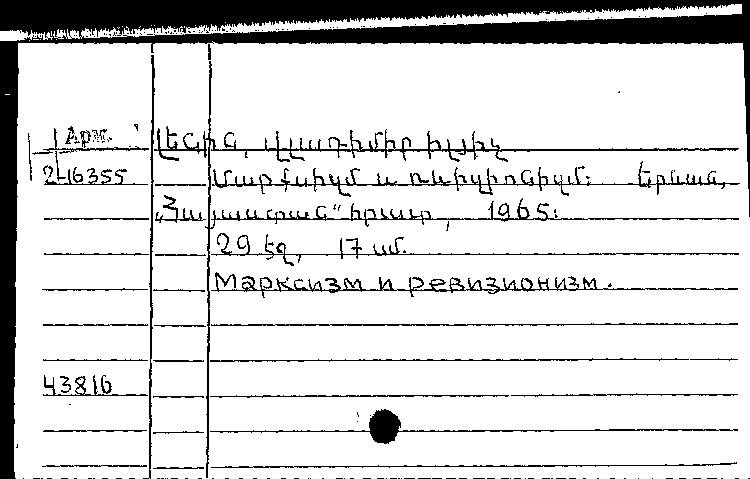 Арм. Լենին, Վլադիմիր Իլյիչ
2-16355 Մարքսիզմ և ռևիզիոնիզմ։ Երևան,
„Հայաստան“ հրատ, 1965։
29 էջ, 17 սմ.
Марксизм и ревизионизм.
43816